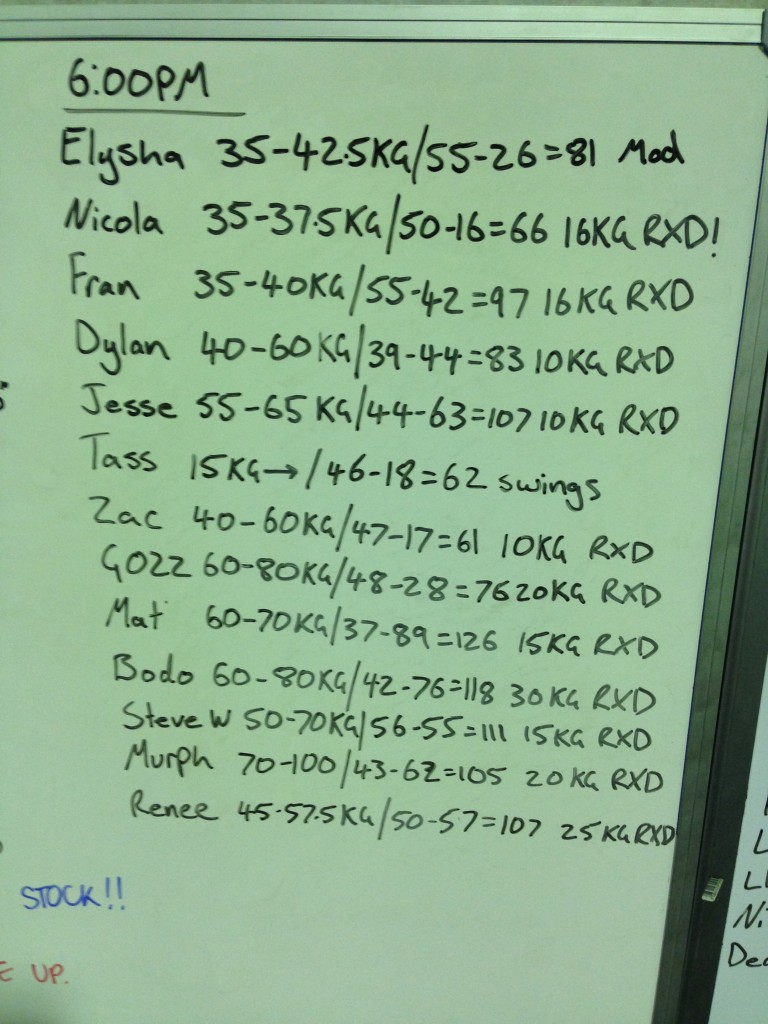 6:00PM
Elysha 35-42.5KG/55-26=81 Mod
Nicola 35-37.5KG/50-16=66 16KG RXD!
Fran 35-40KG/55-42=97 16KG RXD
Dylan 40-60KG/39-44=83 10KG RXD
Jesse 55-65KG/44-63=107 10KG RXD
Tass 15KG→/46-18=62 swings
Zac 40-60KG/47-17=61 10KG RXD
GOZZ 60-80KG/48-28=76 20KG RXD
Mat 60-70KG/37-89=126 15KG RXD
Bodo 60-80KG/42-76=118 30KG RXD
Steve W 50-70KG/56-55=111 15KG RXD
Murph 70-100/43-62=105 20KG RXD
Renee 45-57.5KG/50-57=107 25KG RXD
STOCK!!
E UP.